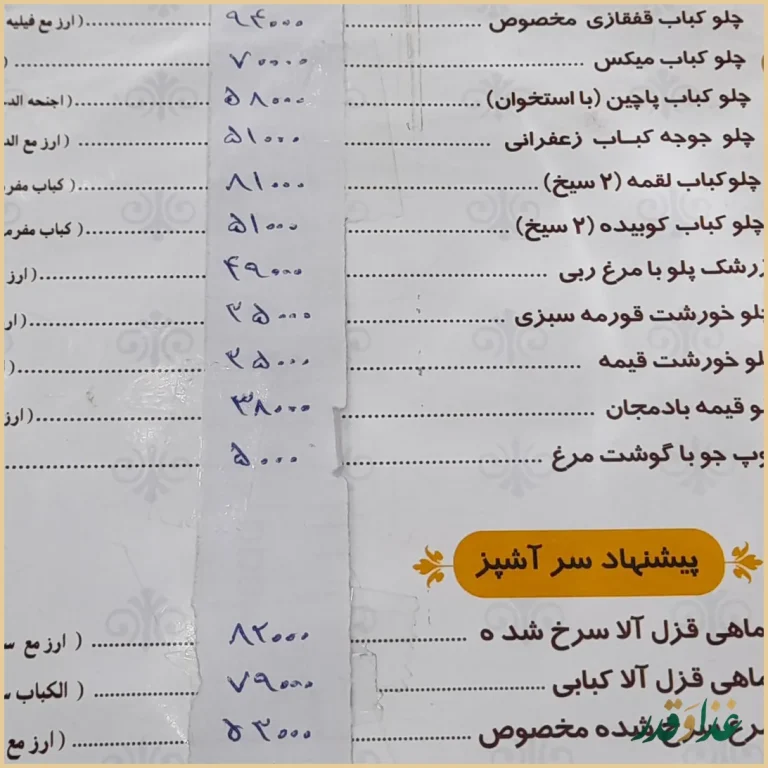 چلو کباب قفقازی مخصوص ........ ۹۴۰۰۰ ........ ( ارز مع فیلیه
چلو کباب میکس ........ ۷۰۰۰۰ ........ (
چلو کباب پاچین (با استخوان) ........ ۵۸۰۰۰ ........ ( اجنحه
چلو جوجه کباب زعفرانی ........ ۵۱۰۰۰ ........ ( ارز مع
چلو کباب لقمه (۲ سیخ) ........ ۸۱۰۰۰ ........ ( کباب
چلو کباب کوبیده (۲ سیخ) ........ ۵۱۰۰۰ ........ ( کباب
زرشک پلو با مرغ ربی ........ ۴۹۰۰۰ ........ ( ارز
خورشت قورمه سبزی ........ ۳۵۰۰۰ ........ (
خورشت قیمه ........ ۳۵۰۰۰ ........ (
قیمه بادمجان ........ ۳۸۰۰۰ ........ ( ارز
جو با گوشت مرغ ........ ۵۰۰۰ ........
پیشنهاد سر آشپز
ماهی قزل آلا سرخ شده ........ ۸۲۰۰۰ ........ ( ارز مع
ماهی قزل آلا کبابی ........ ۷۹۰۰۰ ........ ( الکباب
مرغ سرخ شده مخصوص ........ ۵۳۰۰۰ ........ ( ارز مع